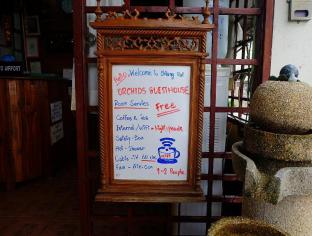 Hello Welcome to
ORCHIDS GUESTHOUSE
Room Services
Free
Coffee & Tea
Internet/WiFi
Safety-Box
Hot-Shower
Cable-TV
Fan - Air-Con
1-2 People
AIRPORT